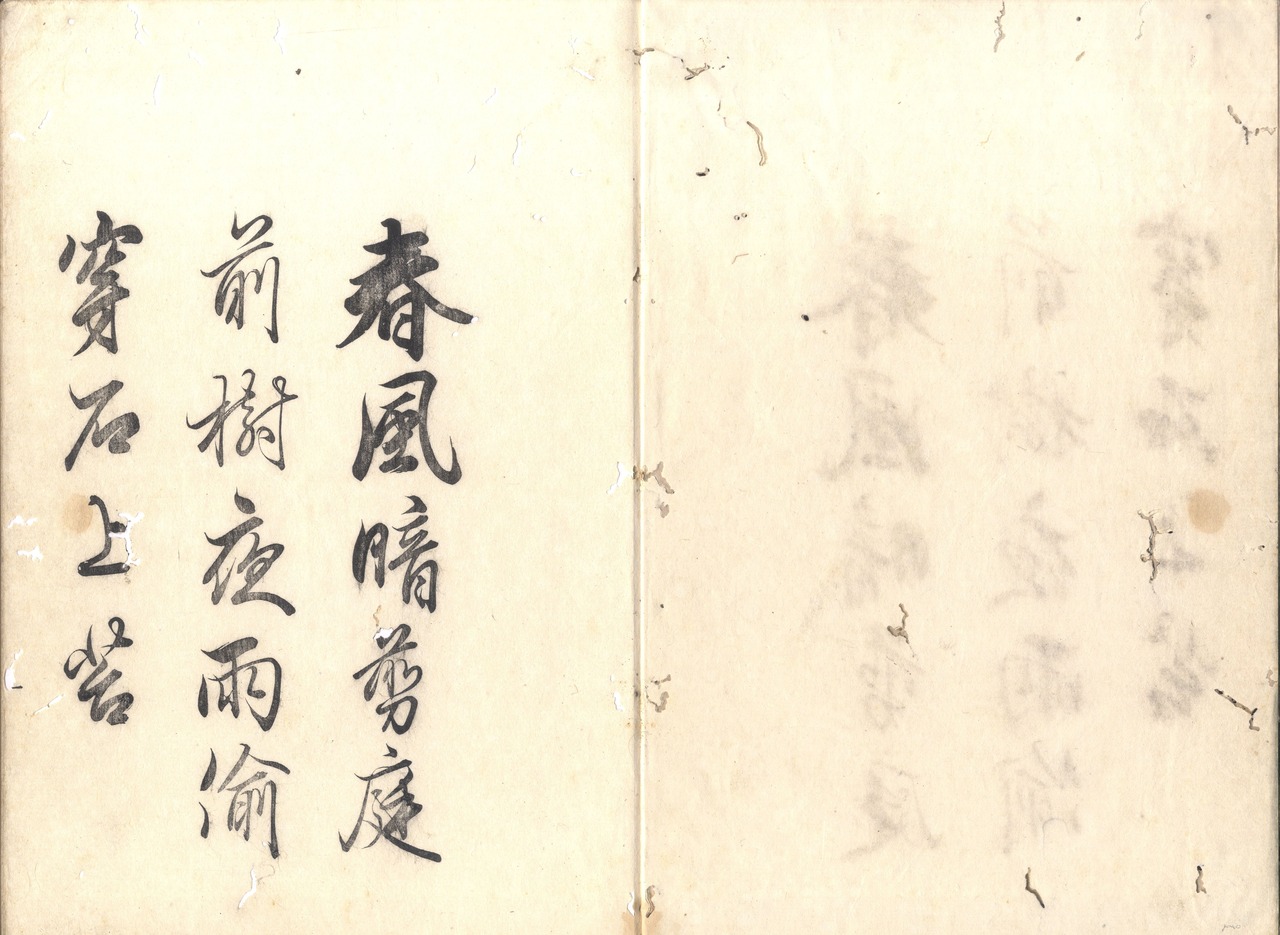 春風暗剪庭
前樹夜雨偷
穿石上苔